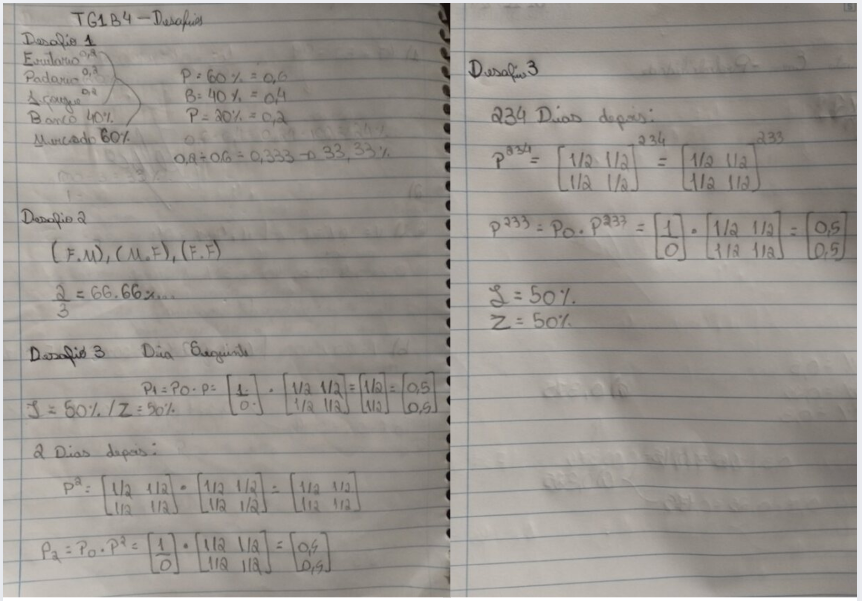 TG1B4 - Desafios
Desafio 1
Padaria
Banco 40%
Mercado 60%
P = 60% = 0,6
B = 40% = 0,4
P = 20% = 0,2
= 0,333 → 33,33%
Desafio 2
(F.M), (M.F), (F.F)
2/3 = 66.66%...
Desafio 3 Dia Seguinte
P1 = P0 . P = [1 0] . [1/2 1/2 1/2 1/2] = [1/2 1/2] = [0,5 0,5]
= 50% / Z = 50%
2 Dias depois:
P² = [1/2 1/2 1/2 1/2] . [1/2 1/2 1/2 1/2] = [1/2 1/2 1/2 1/2]
P2 = P0 . P² = [1 0] . [1/2 1/2 1/2 1/2] = [0,5 0,5]
Desafio 3
234 Dias depois:
P²³⁴ = [1/2 1/2 1/2 1/2]²³⁴ = [1/2 1/2 1/2 1/2]²³³
P²³³ = P0 . P²³³ = [1 0] . [1/2 1/2 1/2 1/2] = [0,5 0,5]
= 50%
Z = 50%